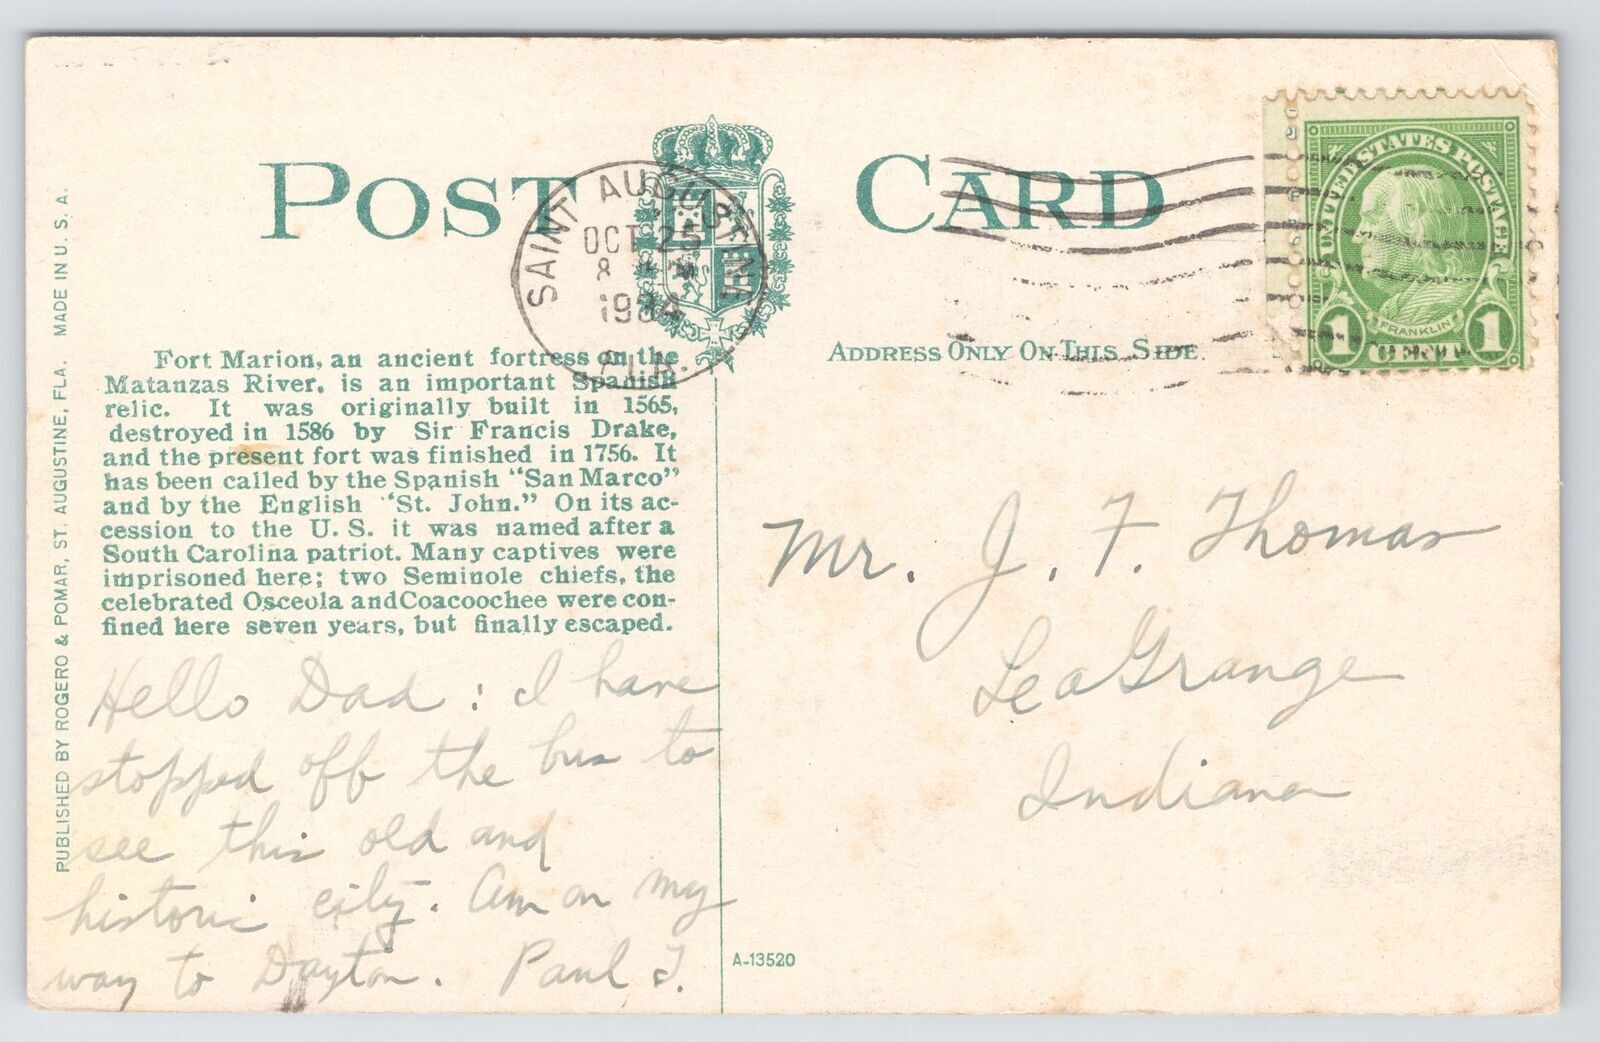 POST CARD
SAINT AUGUSTINE
OCT 25
8
1934
FLA.
UNITED STATES POSTAGE
FRANKLIN
1 CENT 1
ADDRESS ONLY ON THIS SIDE.
PUBLISHED BY ROGERO & POMAR, ST. AUGUSTINE, FLA. MADE IN U. S. A.
Fort Marion, an ancient fortress on the
Matanzas River, is an important Spanish
relic. It was originally built in 1565,
destroyed in 1586 by Sir Francis Drake,
and the present fort was finished in 1756. It
has been called by the Spanish "San Marco"
and by the English "St. John." On its ac-
cession to the U. S. it was named after a
South Carolina patriot. Many captives were
imprisoned here; two Seminole chiefs, the
celebrated Osceola and Coacoochee were con-
fined here seven years, but finally escaped.
Hello Dad: I have
stopped off the bus to
see this old and
historic city. Am on my
way to Dayton. Paul T.
Mr. J. F. Thomas
LaGrange
Indiana
A-13520